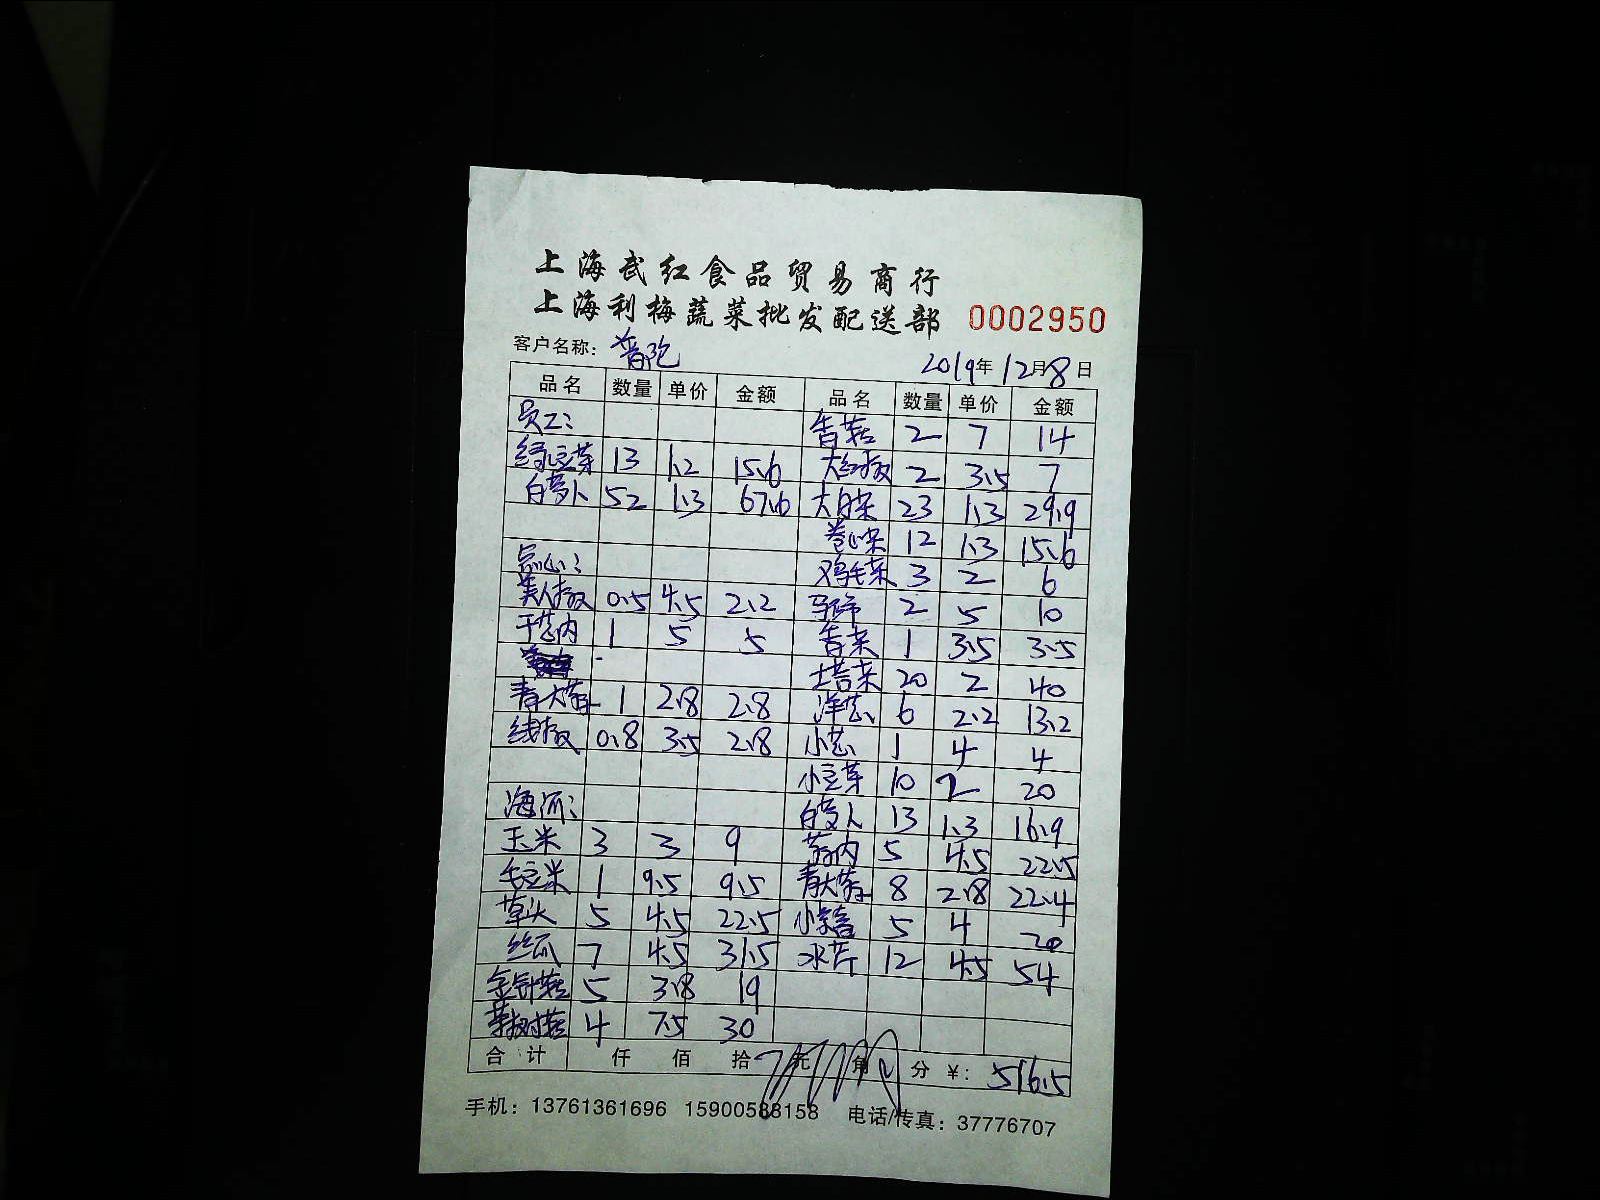 上海武红食品贸易商行
上海利梅蔬菜批发配送部 0002950
客户名称: 2019年12月8日
品名 数量 单价 金额 品名 数量 单价 金额
员工: 香菇 2 7 14
绿豆芽 13 1.2 15.6 大红椒 2 3.5 7
白萝卜 52 1.3 67.6 大白菜 23 1.3 29.9
卷心菜 12 1.3 15.6
点心: 鸡毛菜 3 2 6
美人椒 0.5 4.5 2.2 马蹄 2 5 10
干葱肉 1 5 5 香菜 1 3.5 3.5
塔菜 20 2 40
青大蒜 1 2.8 2.8 洋葱 6 2.2 13.2
线椒 0.8 3.5 2.8 小葱 1 4 4
小豆芽 10 2 20
海派: 白萝卜 13 1.3 16.9
玉米 3 3 9 蒜肉 5 4.5 22.5
毛豆米 1 9.5 9.5 青大蒜 8 2.8 22.4
草头 5 4.5 22.5 5 4 20
丝瓜 7 4.5 31.5 水芹 12 4.5 54
金针菇 5 3.8 19
茶树菇 4 7.5 30
合计 仟 佰 拾 元 角 分 ¥: 516.5
手机: 13761361696 15900588158 电话/传真: 37776707